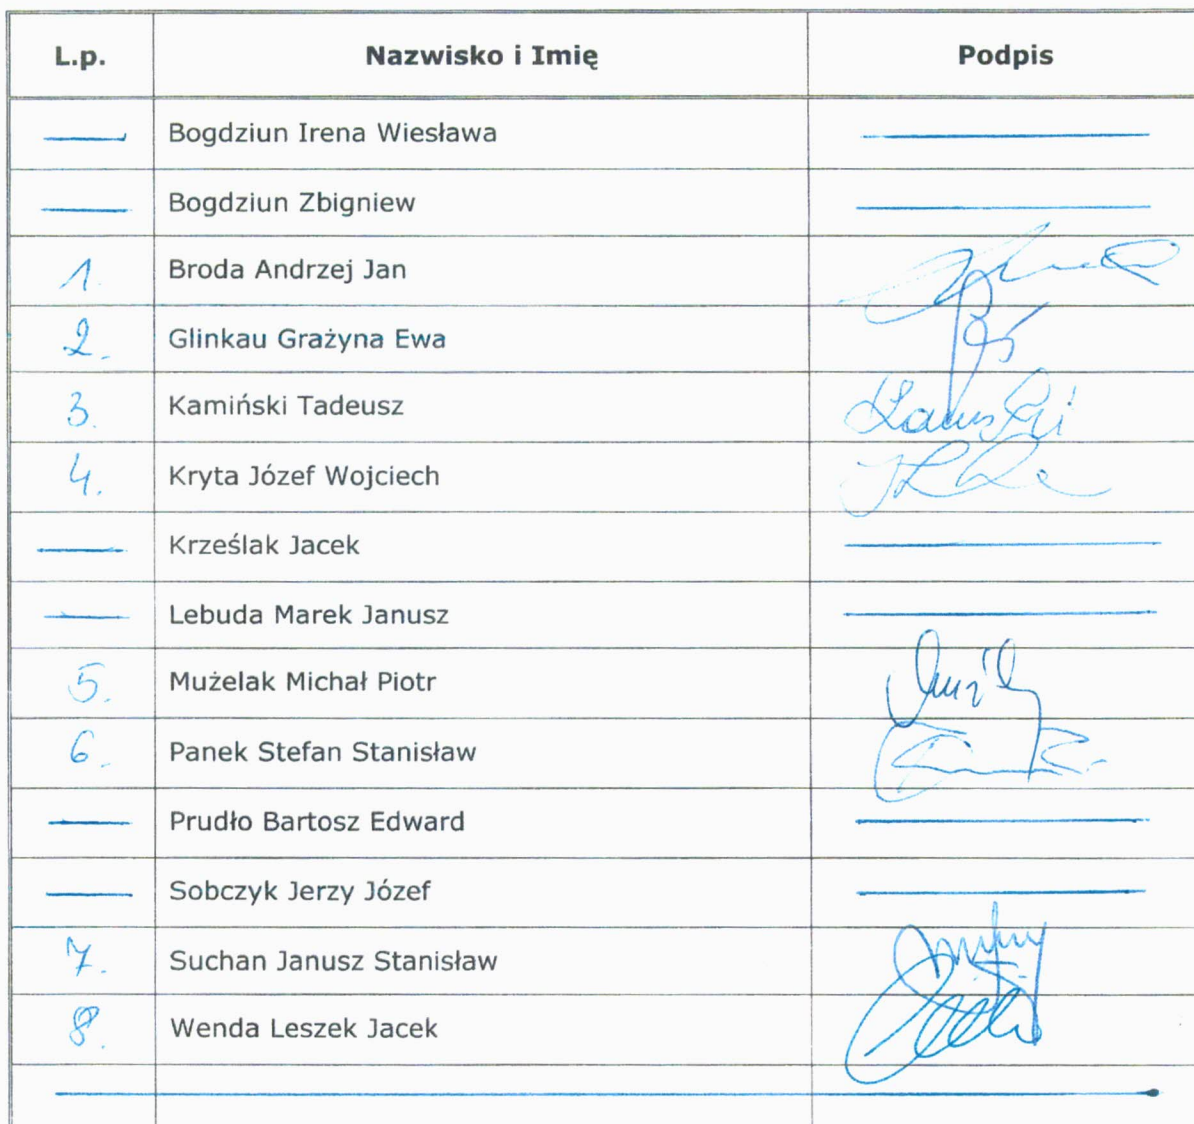 L.p. Nazwisko i Imię Podpis
Bogdziun Irena Wiesława
Bogdziun Zbigniew
1. Broda Andrzej Jan
2. Glinkau Grażyna Ewa
3. Kamiński Tadeusz
4. Kryta Józef Wojciech
Krześlak Jacek
Lebuda Marek Janusz
5. Mużelak Michał Piotr
6. Panek Stefan Stanisław
Prudło Bartosz Edward
Sobczyk Jerzy Józef
7. Suchan Janusz Stanisław
8. Wenda Leszek Jacek